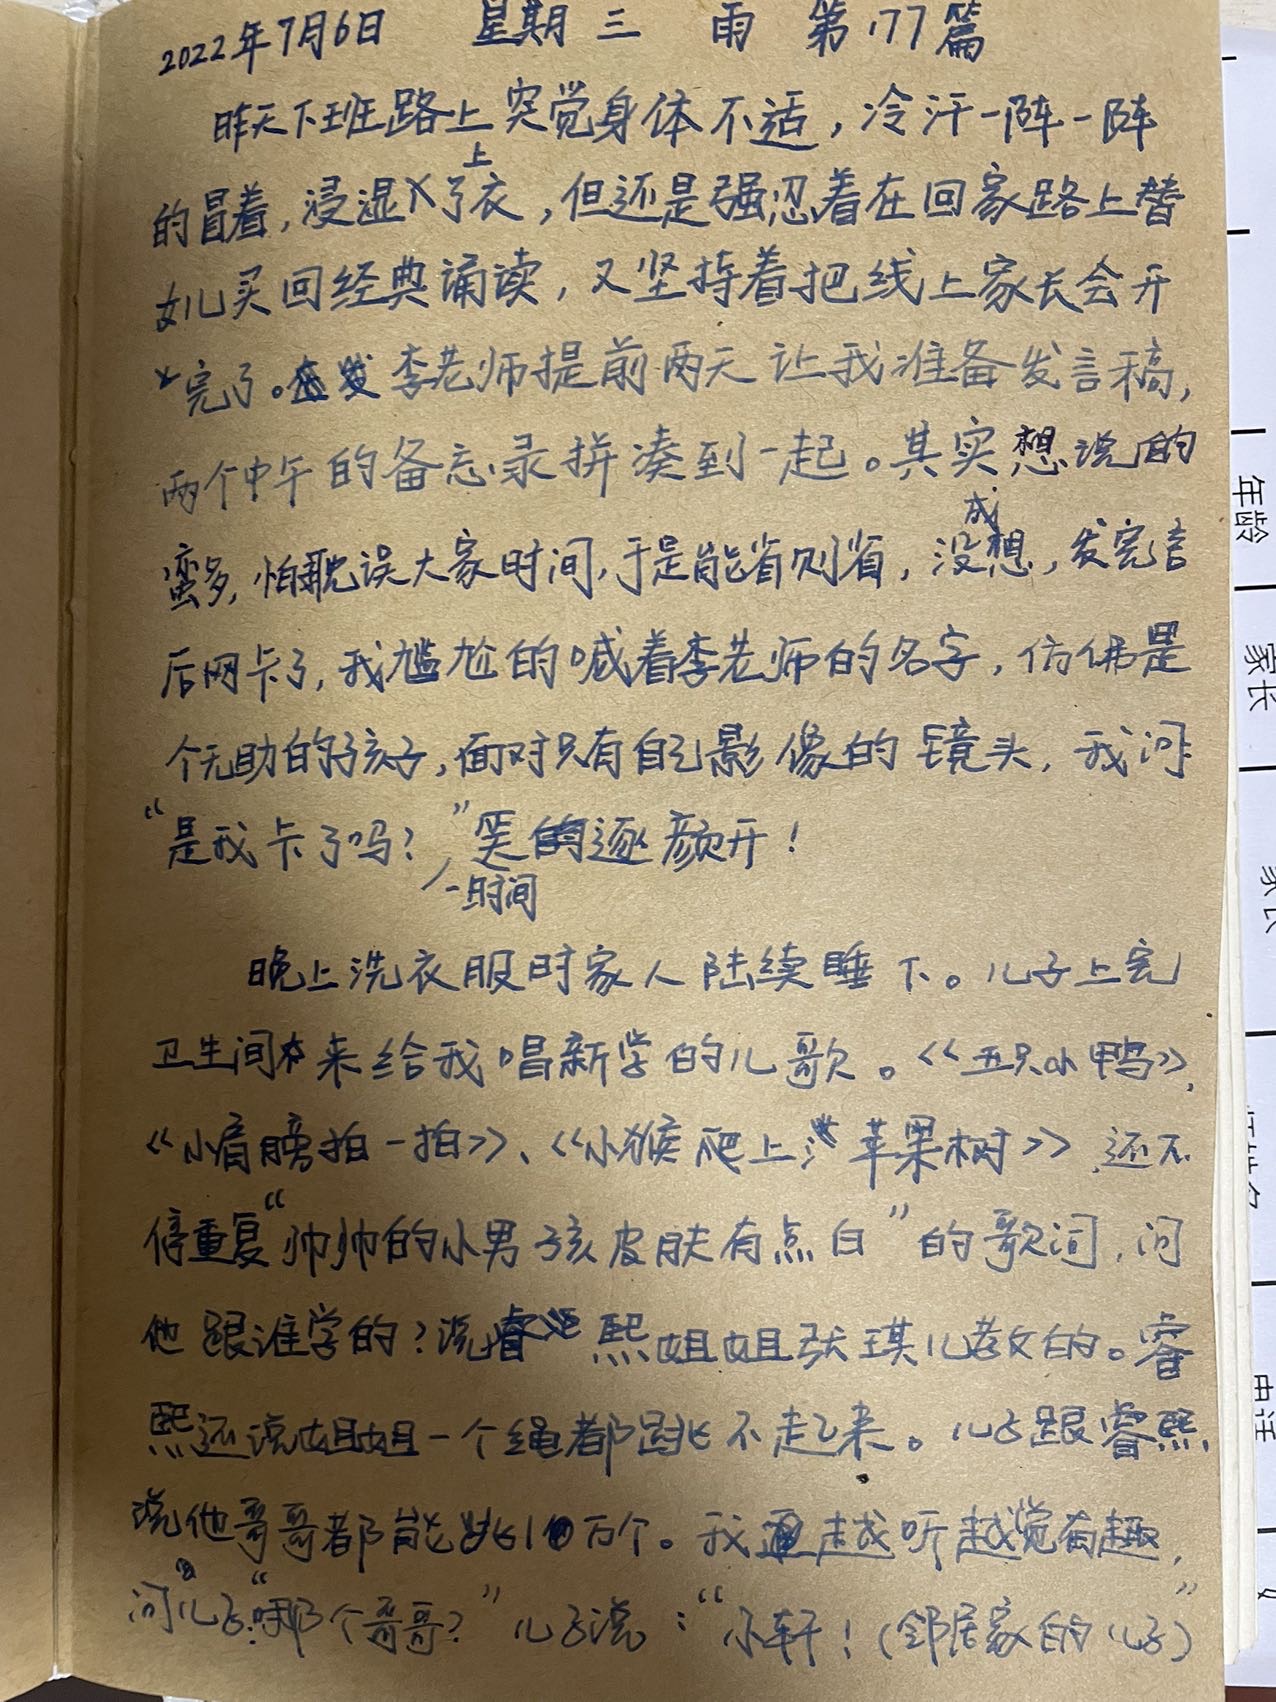 2022年7月6日 星期三 雨 第177篇
昨天下班路上突觉身体不适，冷汗一阵一阵
的冒着，浸湿了上衣，但还是强忍着在回家路上替
女儿买回经典诵读，又坚持着把线上家长会开
完了。李老师提前两天让我准备发言稿，
两个中午的备忘录拼凑到一起。其实想说的
蛮多，怕耽误大家时间，于是能省则省，没成想，发完言
后网卡了，我尴尬的喊着李老师的名字，仿佛是
个无助的孩子，面对只有自己影像的镜头，我问
“是我卡了吗？”，一时间笑逐颜开！
晚上洗衣服时家人陆续睡下。儿子上完
卫生间来给我唱新学的儿歌。《五只小鸭》，
《小肩膀拍一拍》、《小猴爬上苹果树》，还不
停重复“帅帅的小男孩皮肤有点白”的歌词，问
他跟谁学的？说睿熙姐姐张琪儿教的。睿
熙还说姐姐一个绳都跳不起来。儿子跟睿熙
说他哥哥都能跳10万个。我越听越觉有趣，
问儿子：“哪个哥哥？”儿子说：“小轩！（邻居家的儿子）”
年龄
家长
家长